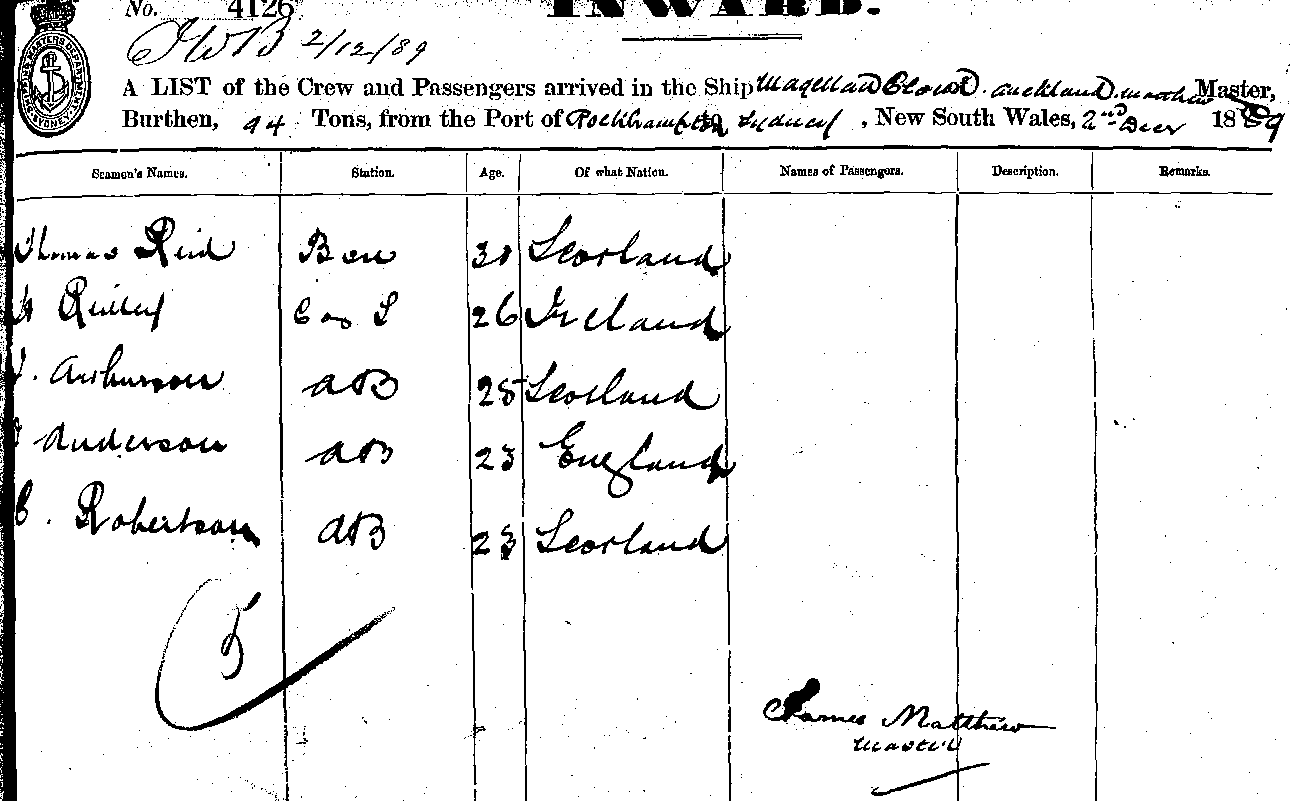 No. 4126 INWARD.
JWB 2/12/89
A LIST of the Crew and Passengers arrived in the Ship Magellan Cloud. Auckland. Matthew Master,
Burthen, 94 Tons, from the Port of Rockhampton Sydney, New South Wales, 2nd Decr 1889
Seamen's Names. Station. Age. Of what Nation. Names of Passengers. Description. Remarks.
Thomas Reid 30 Scotland
Reilly 26 Ireland
Arthurson AB 25 Scotland
Anderson AB 23 England
C. Robertson AB 23 Scotland
5
James Matthew
Master